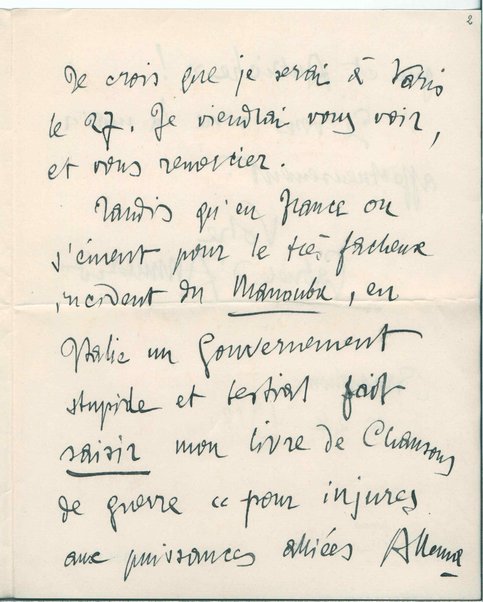 2
Je crois que je serai à Paris
le 27. Je viendrai vous voir,
et vous remercier.
Tandis qu'en France on
s'émeut pour le très facheux
incident du Manouba, en
Italie un Gouvernement
stupide et bestial fait
saisir mon livre de Chansons
de guerre « pour injures
aux puissances alliées Allema